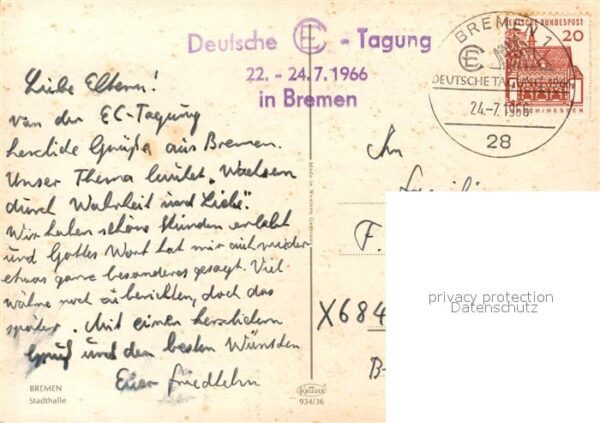 Deutsche EC - Tagung
22. - 24.7.1966
in Bremen
BREMEN 1
EC
DEUTSCHE TAGUNG
24.-7.1966
28
DEUTSCHE BUNDESPOST
20
LORSCH/HESSEN
Liebe Eltern!
Von der EC-Tagung
herzliche Grüße aus Bremen.
Unser Thema lautet "Wachsen
durch Wahrheit und Liebe".
Wir haben schöne Stunden erlebt
und Gottes Wort hat mir auch wieder
etwas ganz besonderes gesagt. Viel
wäre noch zu berichten, doch das
später. Mit einen herzlichen
Gruß und den besten Wünschen
Euer Friedhelm
An
Familie
F.
X684
B-
privacy protection
Datenschutz
Made in Western Germany
BREMEN
Stadthalle
Krüger
934/36